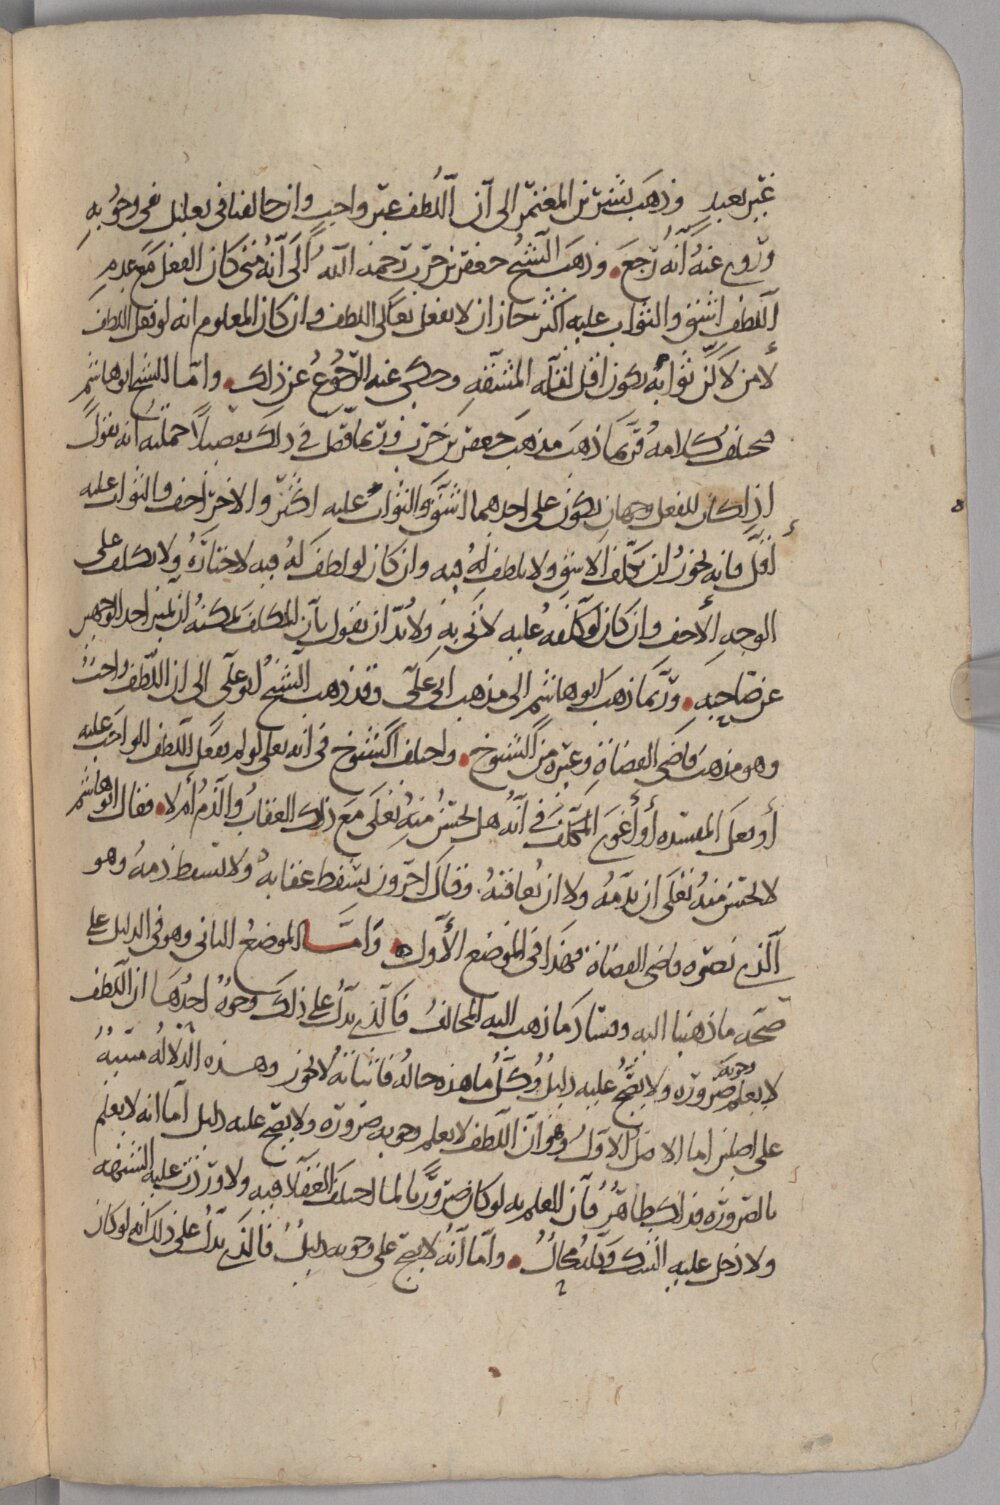 غير بعيد وذهب بشر بن المعتمر الى أن اللطف غير واجب وان خالفنا في تعليل نفي وجوبه
وروي عنه أنه رجع. وذهب الشيخ جعفر بن حرب رحمه الله الى أنه متى كان الفعل مع عدم
اللطف اشق والثواب عليه اكثر جاز ان لا يفعل تعالى اللطف وان كان المعلوم انه لو فعل اللطف
لأمن لاكن ثوابه يكون اقل لقلة المشقة وحكي عنه الرجوع عن ذلك. واما الشيخ ابو هاشم
فيختلف كلامه فربما ذهب مذهب جعفر بن حرب وربما فصل في ذلك تفصيلا جملته انه يقول
اذا كان للفعل وجهان يكون على احدهما اشق والثواب عليه اكثر والاخر اخف والثواب عليه
أقل فانه يجوز ان يكلف الاشق ولا يلطف له فيه وان كان لو لطف له فيه لاختاره ولا يكلف على
الوجه الأخف وان كان لو كلفه عليه لأتى به ولا بد ان يقول بأن المكلف يمكنه ان يميز احد الوجهين
عن صاحبه. وربما ذهب ابو هاشم الى مذهب ابي علي وقد ذهب الشيخ ابو علي الى ان اللطف واجب
وهو مذهب قاضي القضاة وغيره من الشيوخ. واختلف الشيوخ في انه تعالى لو لم يفعل اللطف الواجب عليه
أو فعل المفسدة أو أغوى المكلف في أنه هل يحسن منه تعالى مع ذلك العقاب والذم أم لا. فقال ابو هاشم
لا يحسن منه تعالى ان يذمه ولا ان يعاقبه. وقال اخرون يسقط عقابه ولا تسقط ذمه وهو
الذي نصره قاضي القضاة فهذا في الموضع الأول. وأما الموضع الثاني وهو في الدليل على
صحة ما ذهبنا اليه وفساد ما ذهب اليه المخالف فالذي يدل على ذلك وجوه احدها ان اللطف
لا يعلم وجوبه ضرورة ولا يصح عليه دليل وكل ما هذه حاله فاثباته لا يجوز وهذه الدلالة مبنية
على اصلين اما الاصل الأول وهو أن اللطف لا يعلم وجوبه ضرورة ولا يصح عليه دليل أما انه لا يعلم
بالضرورة فذلك ظاهر فأن العلم به لو كان ضروريا لما اختلف العقلا فيه ولا وردت عليه الشبهة
ولا دخل عليه الشك وكله محال. وأما أنه لا يصح على وجوبه دليل فالذي يدل على ذلك انه لو كان